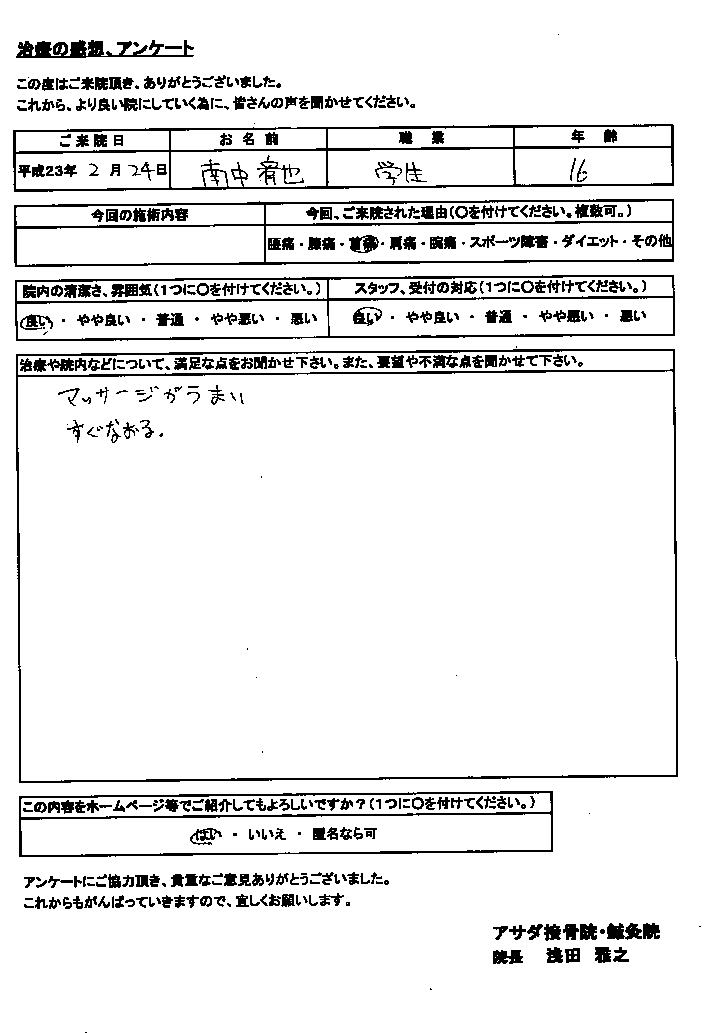 治療の感想、アンケート
この度はご来院頂き、ありがとうございました。
これから、より良い院にしていく為に、皆さんの声を聞かせてください。
ご来院日 お名前 職業 年齢
平成23年 2月24日 南中宥也 学生 16
今回の施術内容 今回、ご来院された理由(〇を付けてください。複数可。)
腰痛・膝痛・首痛・肩痛・腕痛・スポーツ障害・ダイエット・その他
院内の清潔さ、雰囲気(1つに〇を付けてください。) スタッフ、受付の対応(1つに〇を付けてください。)
良い・やや良い・普通・やや悪い・悪い 良い・やや良い・普通・やや悪い・悪い
治療や院内などについて、満足な点をお聞かせ下さい。また、要望や不満な点を聞かせて下さい。
マッサージがうまい
すぐなおる.
この内容をホームページ等でご紹介してもよろしいですか?(1つに〇を付けてください。)
はい・いいえ・匿名なら可
アンケートにご協力頂き、貴重なご意見ありがとうございました。
これからもがんばっていきますので、宜しくお願いします。
アサダ接骨院・鍼灸院
院長 浅田 雅之